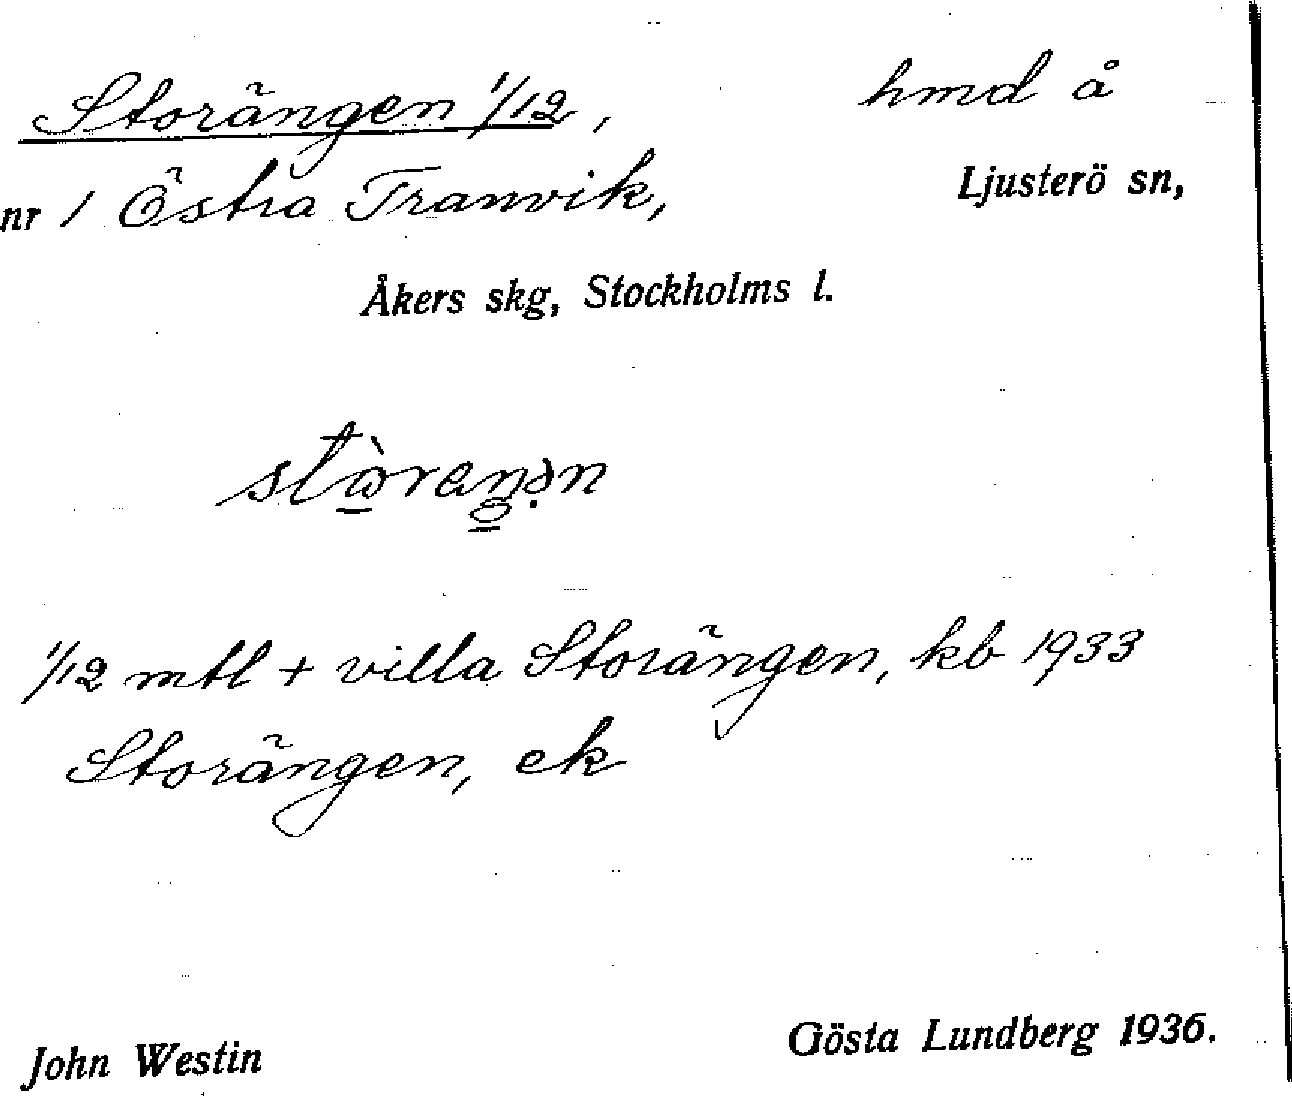 Storängen 1/12, hmd å
nr 1 Östra Tranvik, Ljusterö sn,
Åkers skg, Stockholms l.
1/12 mtl + villa Storängen, kb 1933
Storängen, ek
John Westin Gösta Lundberg 1936.